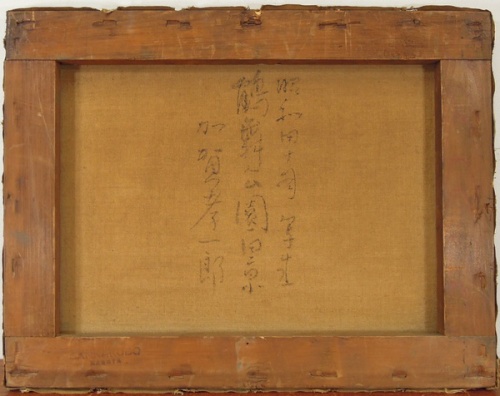 昭和四十 写生
鶴舞公園一景
加賀孝一郎